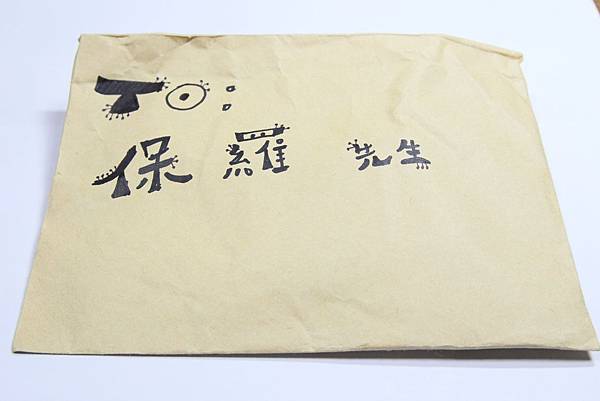 To:
保羅 先生